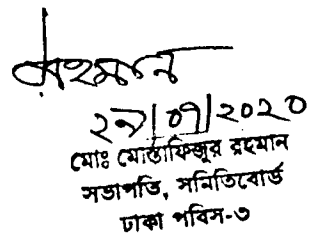 রহমান
২৯/০৭/২০২০
মোঃ মোস্তাফিজুর রহমান
সভাপতি, সমিতিবোর্ড
ঢাকা পবিস-৩